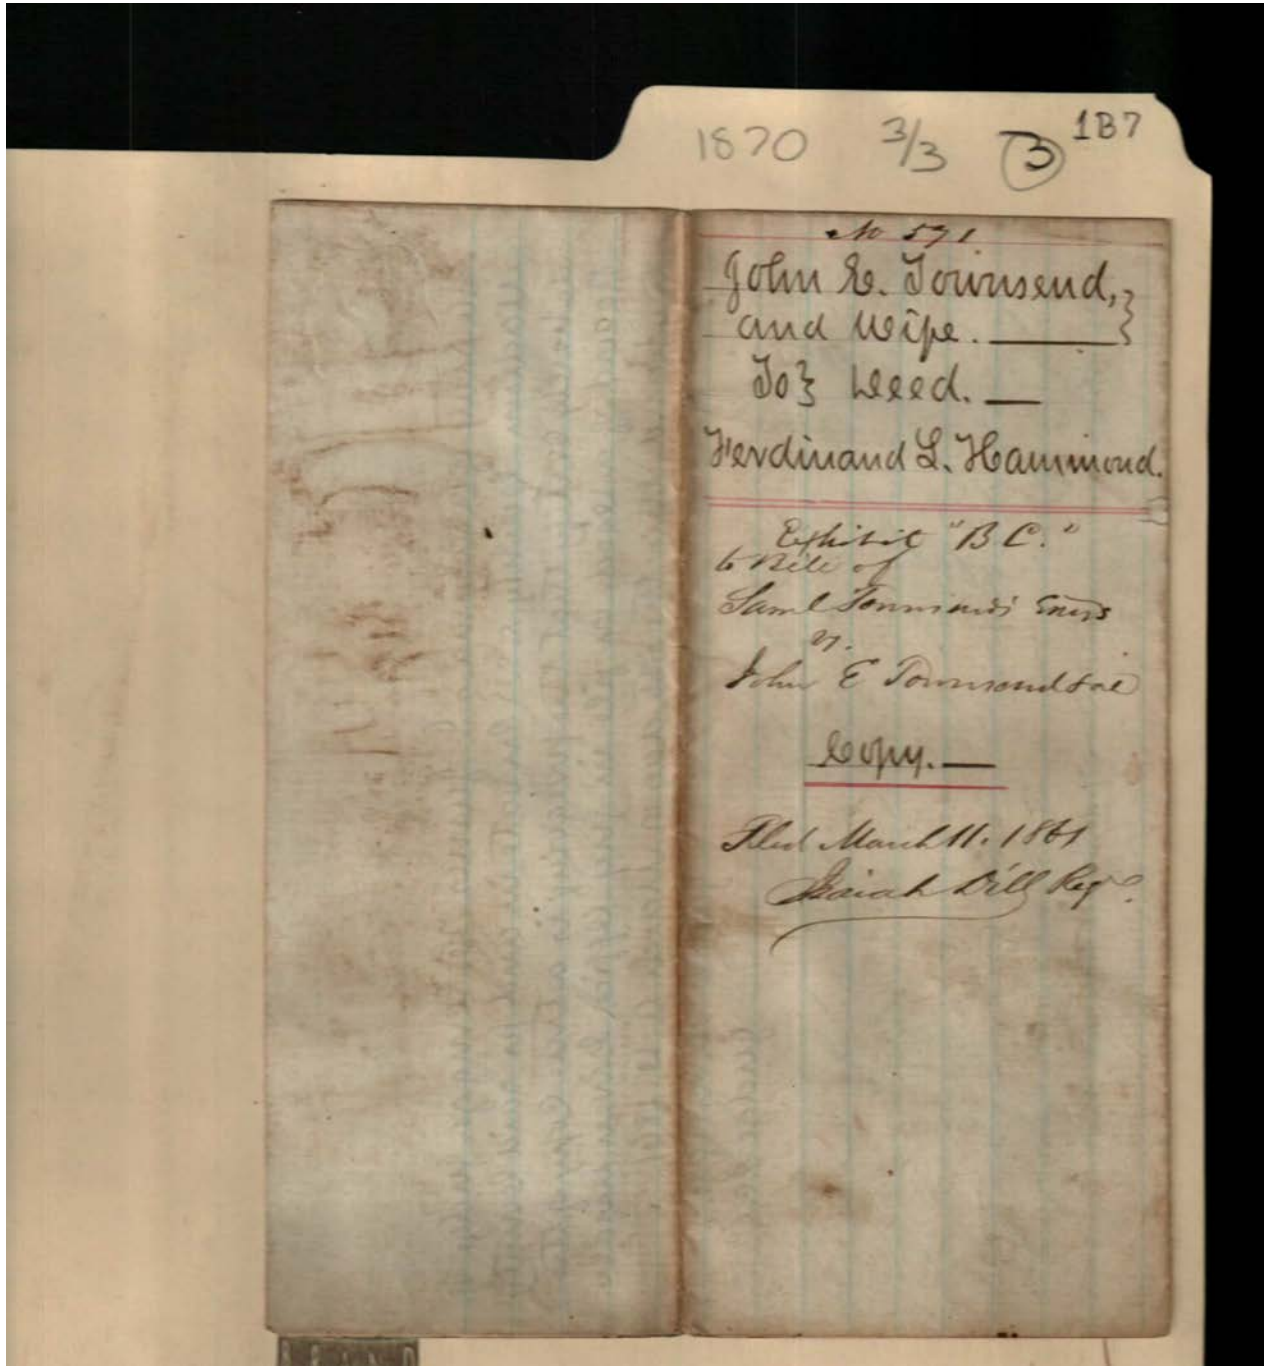 1870 3/3 3 1B7
No 571
John E. Townsend,}
and Wife. ———}
To} Deed. —
Ferdinand L. Hammond.
Exhibit "B C."
to Bill of
Saml Townsends Exors
vs.
John E Townsend & al
Copy. —
Filed March 11. 1861
Isaiah Dill Regr.